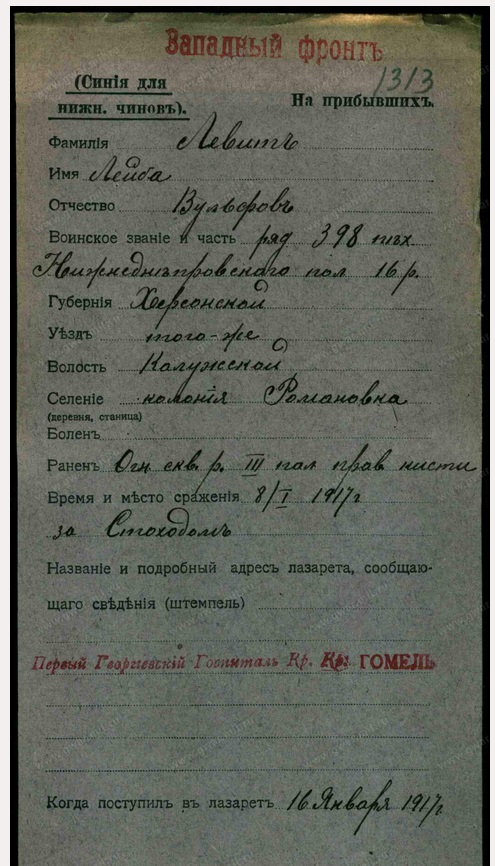 Западный фронтъ
1313
(Синія для
нижн. чиновъ).
На прибывшихъ.
Фамилія Левитъ
Имя Лейба
Отчество Вульфовъ
Воинское званіе и часть ряд 398 пѣх.
Нижнеднѣпровскаго пол 16 р.
Губернія Херсонской
Уѣздъ того-же
Волость Калужской
Селеніе колонія Романовка
(деревня, станица)
Боленъ
Раненъ Огн скв. р. III пал прав кисти
Время и мѣсто сраженія 8/I 1917 г
за Стоходомъ
Названіе и подробный адресъ лазарета, сообщаю-
щаго свѣдѣнія (штемпель)
Первый Георгіевскій Госпиталь Кр. Кр. ГОМЕЛЬ
Когда поступилъ въ лазаретъ 16 Января 1917 г.